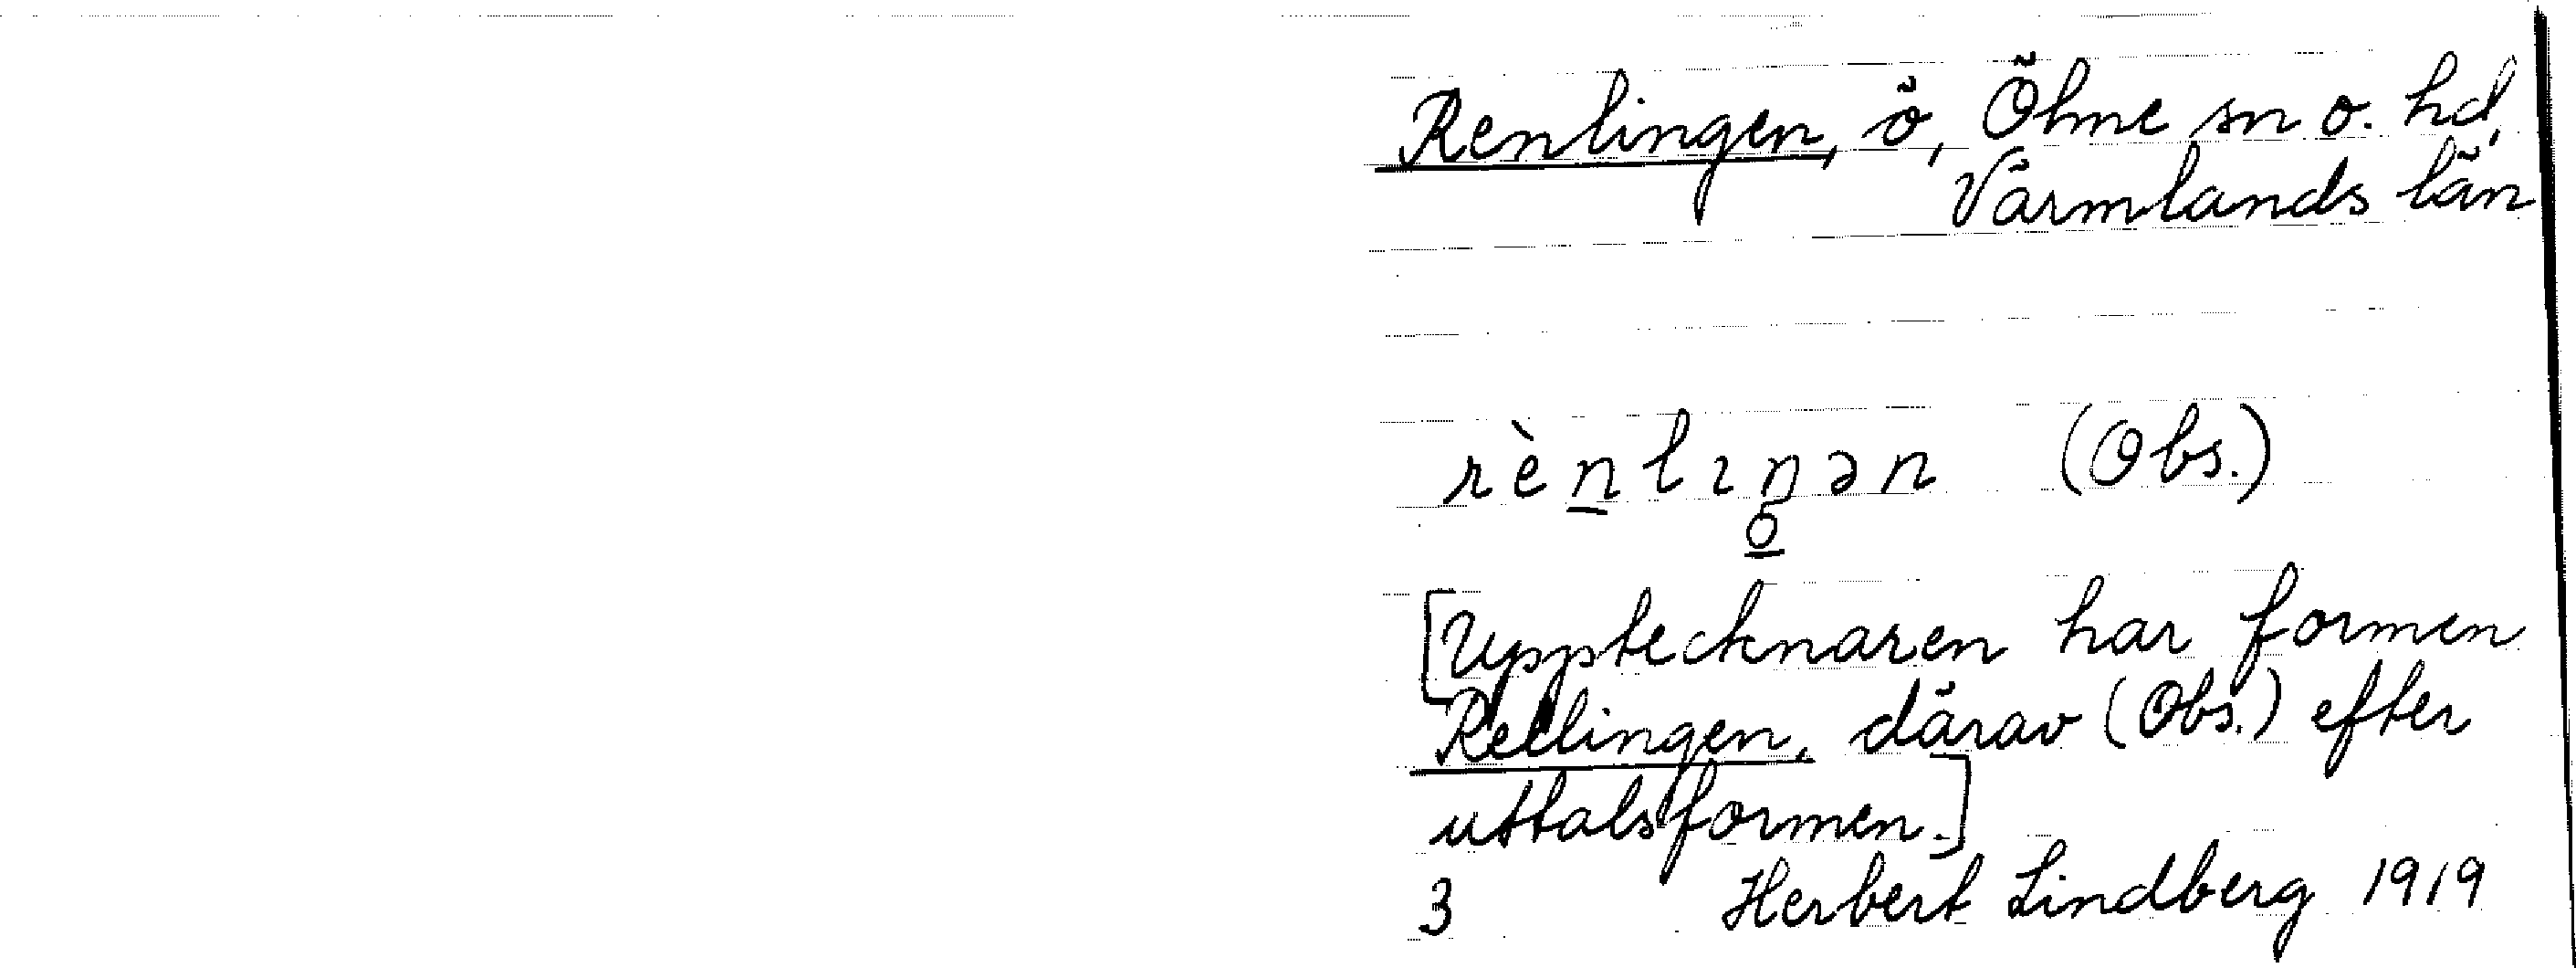 Renlingen, ö, Ölme sn o. hd,
Värmlands län
rènlıŋən (Obs.)
[Upptecknaren har formen
Rellingen, därav (Obs.) efter
uttalsformen.]
3 Herbert Lindberg 1919